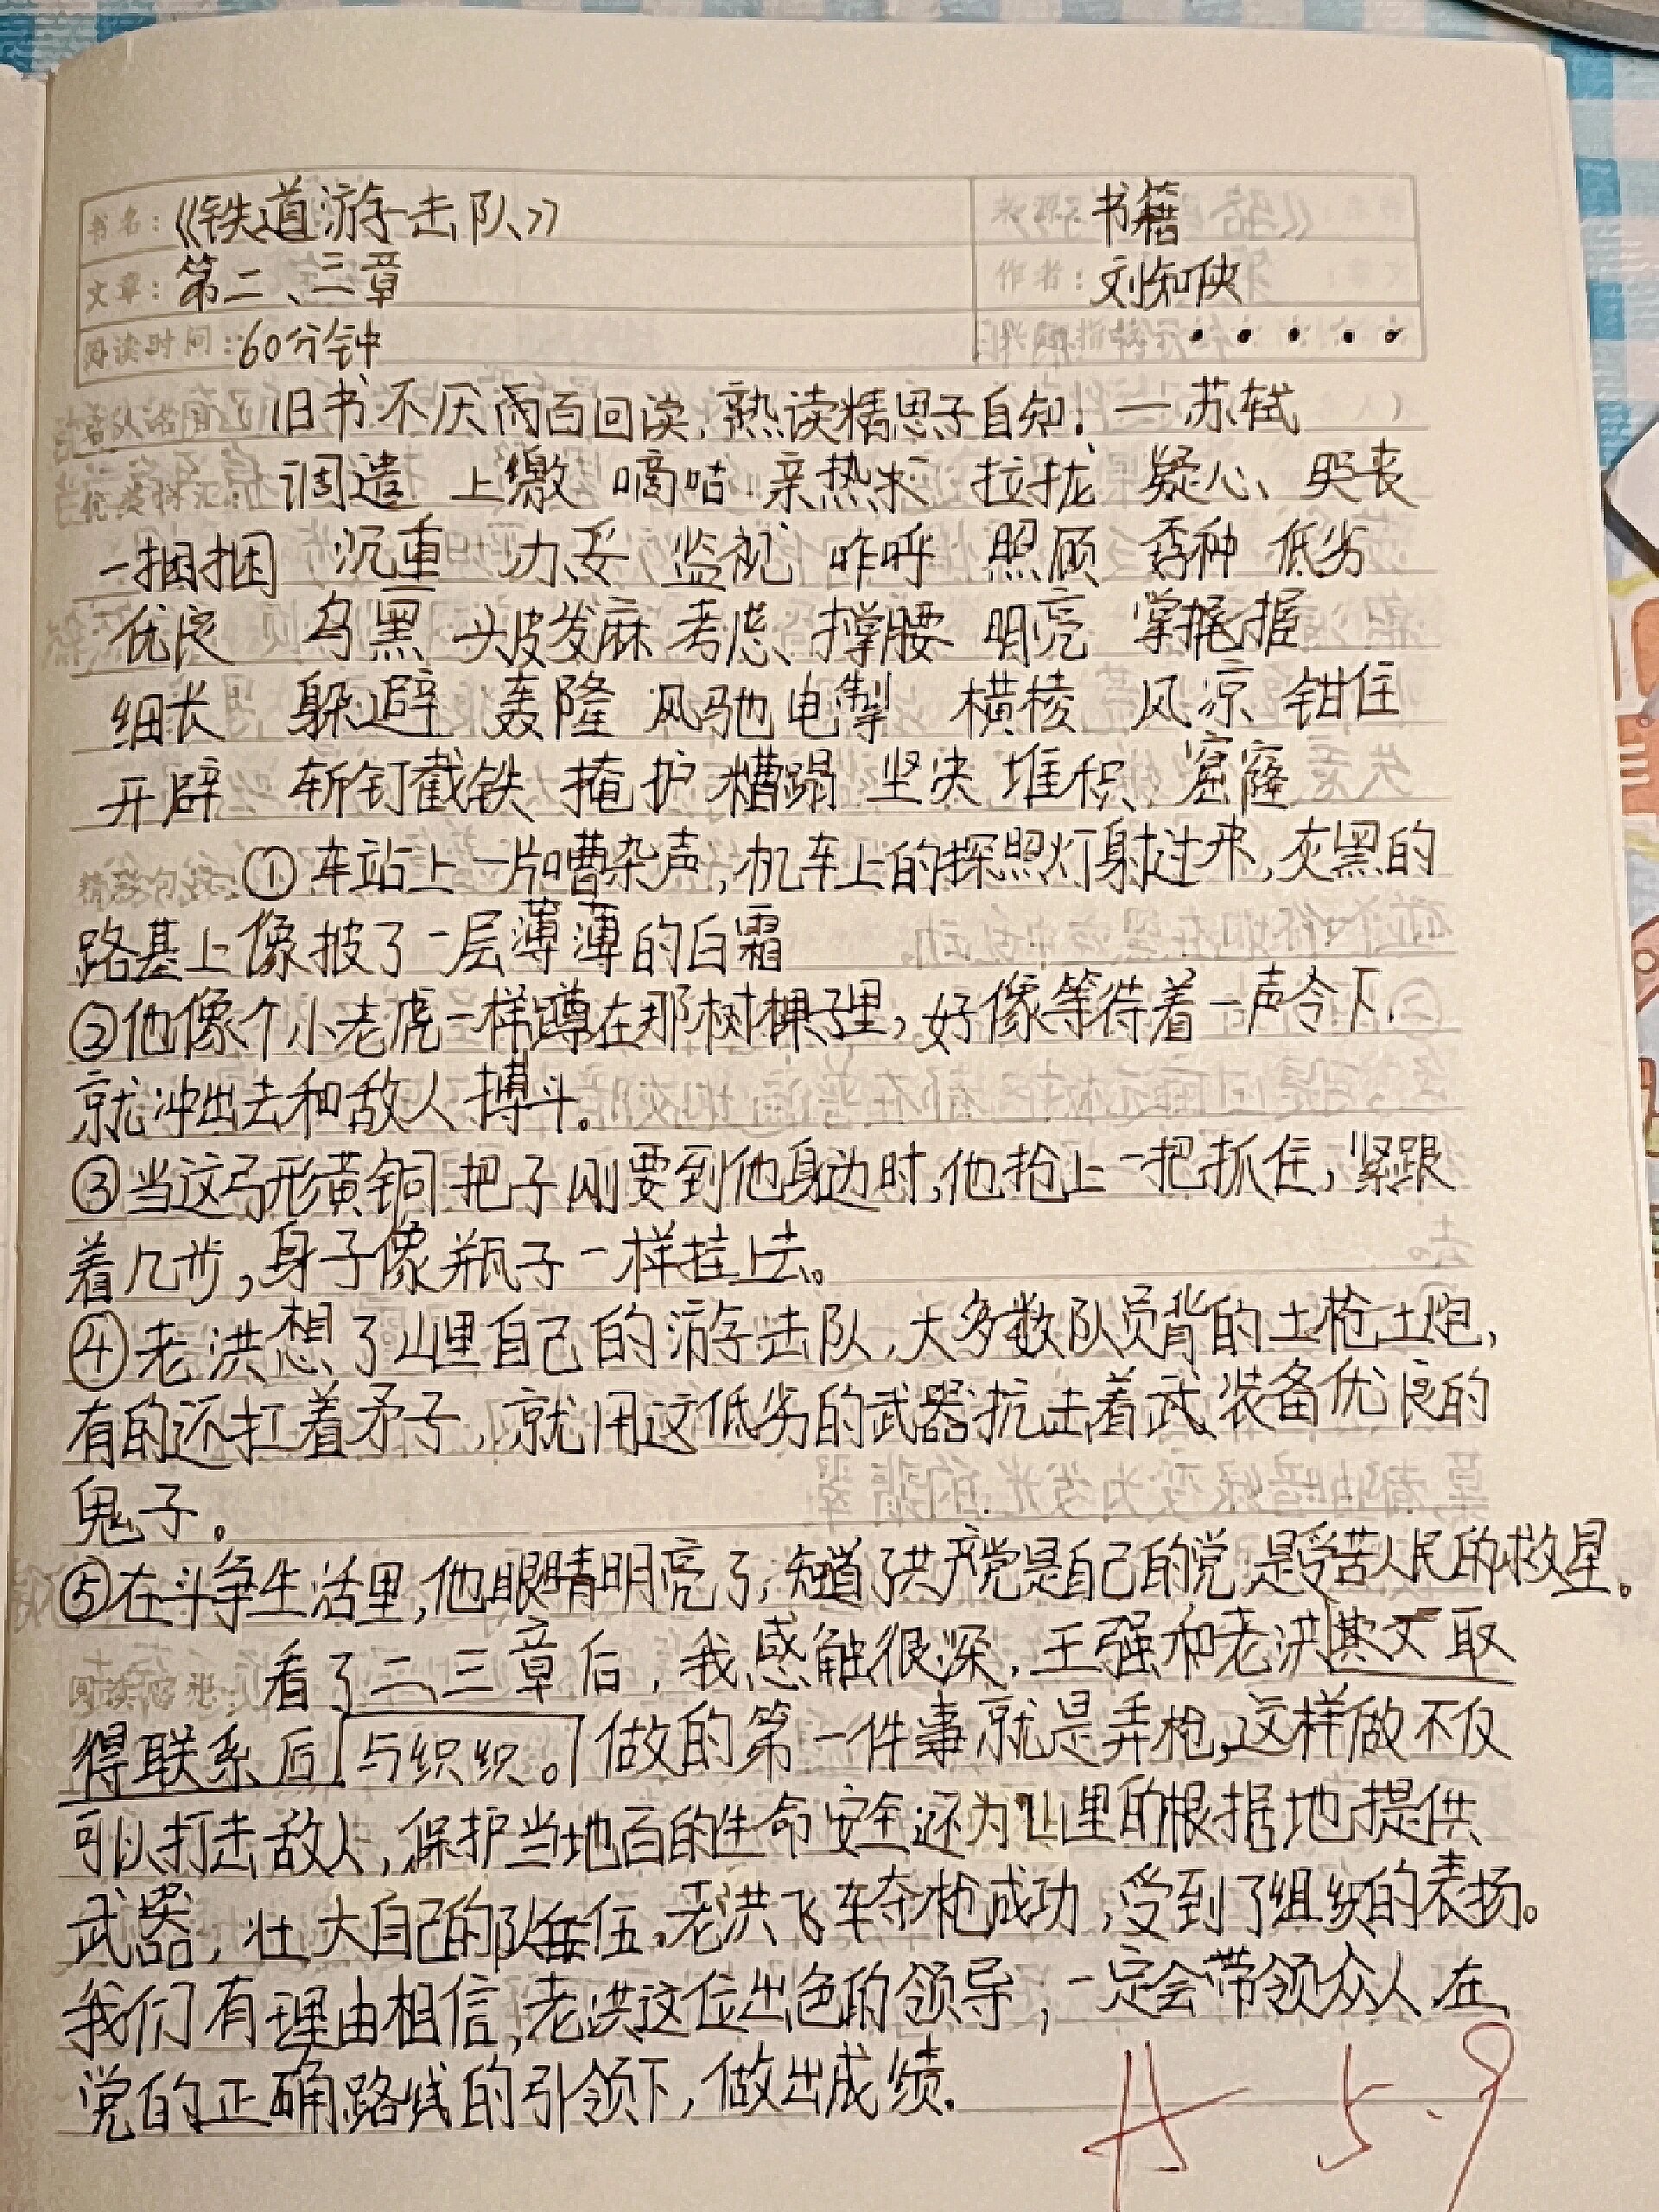 书名：《铁道游击队》 书籍
文章：第二、三章 作者：刘知侠
阅读时间：60分钟
旧书不厌百回读，熟读精思子自知！—苏轼
调遣 上缴 嘀咕 亲热 拉拢 疑心 哭丧
一捆捆 沉重 办妥 监视 咋呼 照顾 孬种 低劣
优良 乌黑 头皮发麻 考虑 撑腰 明亮 掌握
细长 躲避 轰隆 风驰电掣 横棱 风凉 钳住
开辟 斩钉截铁 掩护 糟蹋 坚决 堆积 窟窿
精彩句段：①车站上一片嘈杂声，机车上的探照灯射过来，灰黑的
路基上像披了一层薄薄的白霜
②他像个小老虎一样蹲在那树棵子里，好像等待着一声令下，
就冲出去和敌人搏斗。
③当这弓形黄铜把子刚要到他身边时，他抢上一把抓住，紧跟
着几步，身子像瓶子一样挂上去。
④老洪想了山里自己的游击队，大多数队员背的土枪土炮，
有的还扛着矛子，就用这低劣的武器抗击着武装备优良的
鬼子。
⑤在斗争生活里，他眼睛明亮了，知道了共产党是自己的党，是受苦人民的救星。
阅读感想：看了二、三章后，我感触很深，王强和老洪取
得联系后与组织。做的第一件事就是弄枪，这样做不仅
可以打击敌人，保护当地百的生命安全还为山里的根据地提供
武器，壮大自己的队伍。老洪飞车夺枪成功，受到了组织的表扬。
我们有理由相信，老洪这位出色的领导，一定会带领众人在
党的正确路线的引领下，做出成绩。
A 5.9